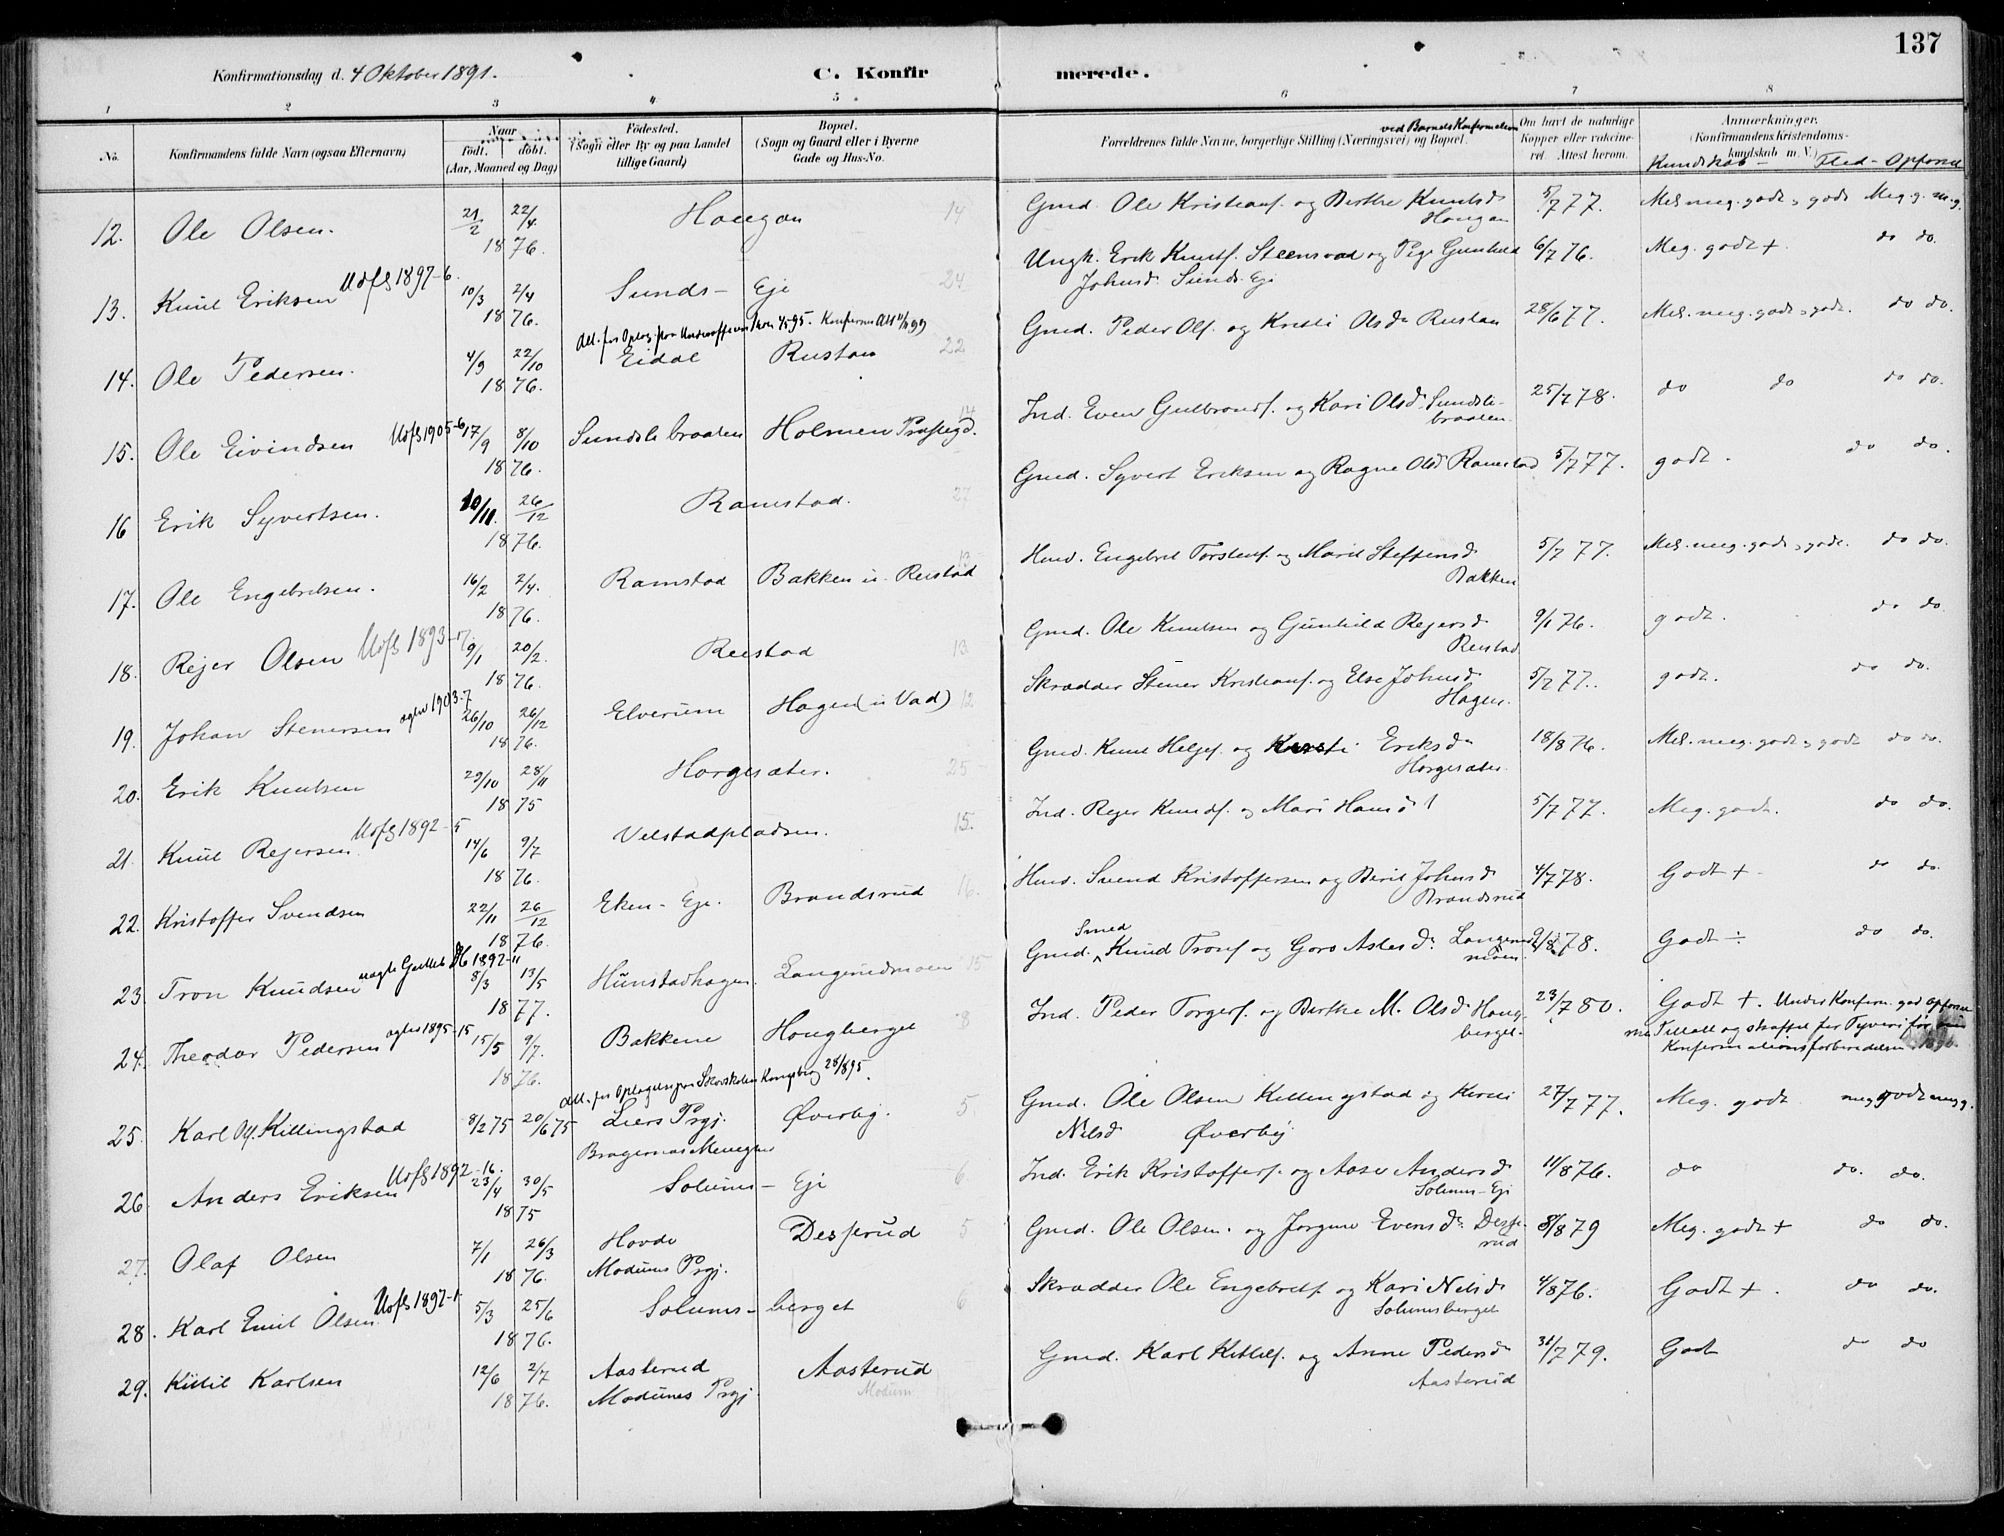 137
Konfirmationsdag d. 4 Oktober 1891.
C. Konfirmerede.
1 2 3 4 5 6 7 8
No.
Konfirmandens fulde Navn (ogsaa Efternavn)
Naar
født. døbt.
(Aar, Maaned og Dag)
Fødested.
(Sogn eller By og paa Landet
tillige Gaard)
Bopæl.
(Sogn og Gaard eller i Byerne
Gade og Hus-No.
ved Barnets Konfirmation
Forældrenes fulde Navne, borgerlige Stilling (Næringsvei) og Bopæl.
Om havt de naturlige
Kopper eller vakcine-
ret. Attest herom.
Anmærkninger.
(Konfirmandens Kristendoms-
kundskab m. V.)
Kundskab - Flid - Opførsel
12. Ole Olsen. 21/2 22/4 1876. Hougan 14 Gmd. Ole Kristians. og Berthe Knutsd. Hougan 5/7 77. Mel. meg. godt og godt Meg g. m.g.
13. Knut Eriksen Udfl 1897-6. 10/3 2/4 1876. Sunds- Eje 24 Ungk. Erik Knuts. Steensvad og Pige Gunhild
Johnsd. Sunds. Eje 6/7 76. Meg. godt + do do.
14. Ole Pedersen. 4/9 22/10 1876. Eidal Rustan 22 Gmd. Peder Ols. og Kristi Olsd. Rustan 28/6 77. Mel. meg. godt og godt. do do.
15. Ole Eivindsen Udfl 1905-6 17/9 8/10 1876. Sundslibraaten Holmen Præstegd. 14 Ind. Even Gulbrands. og Kari Olsd. Sundsli-
braaten. 25/7 78. do do do do.
16 Erik Syvertsen. 10/11. 26/12 1876. Ramstad. 27 Gmd. Syvert Eriksen og Ragne Olsd. Ramstad 5/7 77. godt. do do.
17. Ole Engebretsen. 16/2 2/4. 1876. Ramstad Bakken u. Renstad 13 Hmd. Engebret Torstens. og Marit Steffensd.
Bakken 5/7 77. Mel. meg. godt og godt. do do.
18. Rejer Olsen Udfl 1893-17 9/1 20/2. 1876. Renstad 13 Gmd. Ole Knutsen og Gunhild Rejersd.
Renstad 9/1 76. godt. do do.
19. Johan Stenersen 1903-7 26/10 26/12 1876. Elverum Hagen (u Vad) 12 Skrædder Stener Kristians. og Else Johnsd.
Hagen. 5/7 77. godt. do do.
20. Erik Knutsen 29/10 28/11 1875 Horgesæter. 25 Gmd. Knut Helges. og Kersti Eriksd.
Horgesæter. 18/8 76. Mel. meg. godt og godt do do.
21. Knut Rejersen Udfl 1892-5 14/6 9/7 1876. Velstadpladsen. 15. Ind. Rejer Knuds. og Mari Hansd. 5/7 77. Meg. godt. do do.
22. Kristoffer Svendsen 22/11 26/12 1876. Eken - Eje. Brandsrud 16. Hmd. Svend Kristoffersen og Berit Johnsd.
Brandsrud 4/7 78. Godt + do do.
23. Tron Knudsen 1892-11 8/3 13/5 1877. Hunstadhagen. Langerudmoen 15 Gmd. Smed Knud Trons. og Goro Aslesd. Langerud-
moen. 9/8 78. Godt ÷ do do.
24. Theodor Pedersen 1895-15 15/5 9/7. 1876. Bakkene Hougberget 8 Ind. Peder Torgers. og Berthe M. Olsd. Houg-
berget. 23/7 80. Godt +. Under Konfirm. god Opførsel
men Tiltalt og straffet for Tyveri før sin
Konfirmationsforberedelse. 1890.
25. Karl Ols. Killingstad 8/2 75 20/6 75 Liers Prgj.
Bragernes Menighed Øverby. 5. Gmd. Ole Olsen Killingstad og Karen
Nilsd. Øverby 27/7 77. Meg. godt meg godt meg g.
26. Anders Eriksen Udfl 1892-16. 23/4 30/5 1875 Solums - Eje 6 Ind. Erik Kristoffers. og Aase Andersd.
Solums-Eje 11/8 76. do do. do.
27. Olaf Olsen 7/1 26/3 1876. Hovde
Modums Prgj. Desserud 5 Gmd. Ole Olsen. og Jørgine Evensd. Desse-
rud 8/8 79 Meg. godt + do do.
28. Karl Emil Olsen. Udfl 1897-1 5/3 25/6 1876. Solums- berget 6 Skrædder Ole Engebrets. og Kari Nilsd.
Solumsberget 4/8 76. Godt +. do do.
29. Kittil Karlsen 12/6 2/7 1876. Aasterud
Modums Prgj. Aasterud
Modum Gmd. Karl Kittils. og Anne Pedersd.
Aasterud 31/7 79. Godt do do